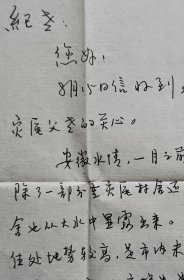 纪老:
您好!
8月15日信收到,
灾区父老的关心。
安徽水情,一月之前
除了一部分重灾区村舍还
舍也从大水中显露出来。
住处地势较高,是市内未